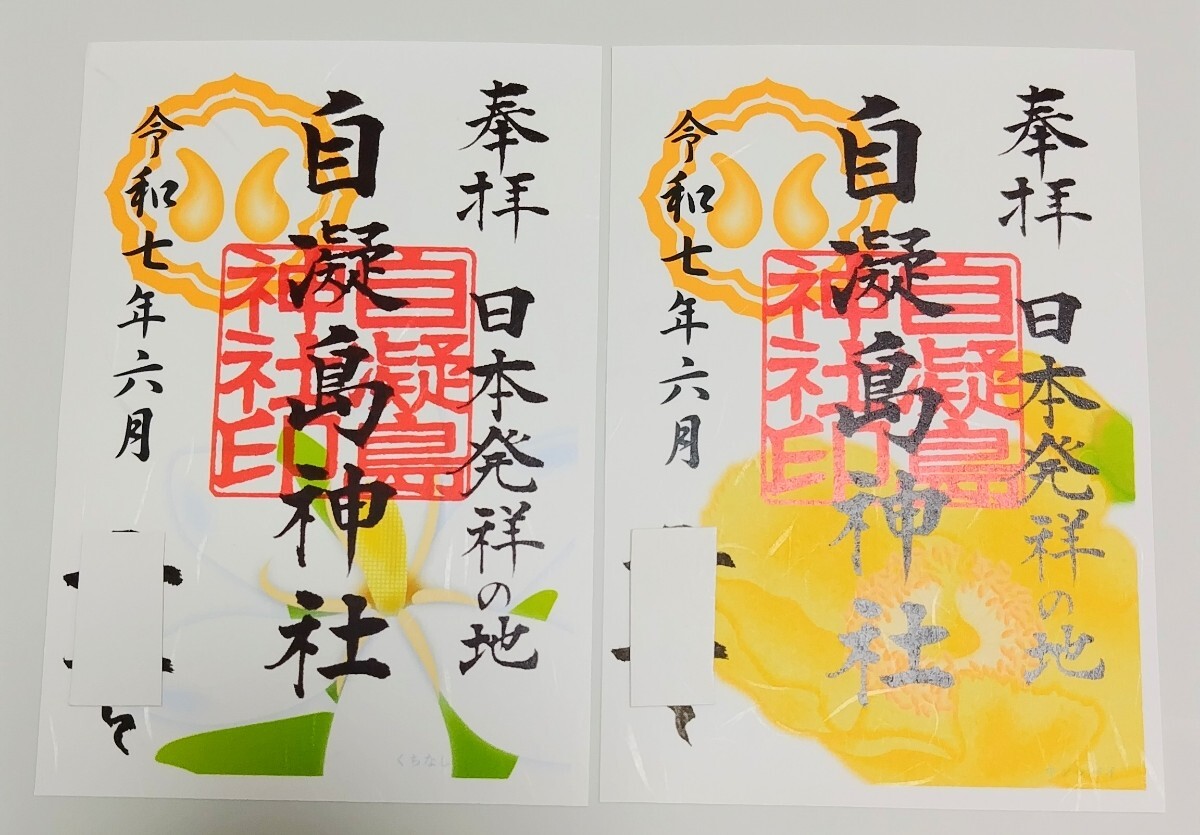 奉拝 日本発祥の地
自凝島神社
自凝島
神社印
令和七年六月
くちなし
奉拝 日本発祥の地
自凝島神社
自凝島
神社印
令和七年六月